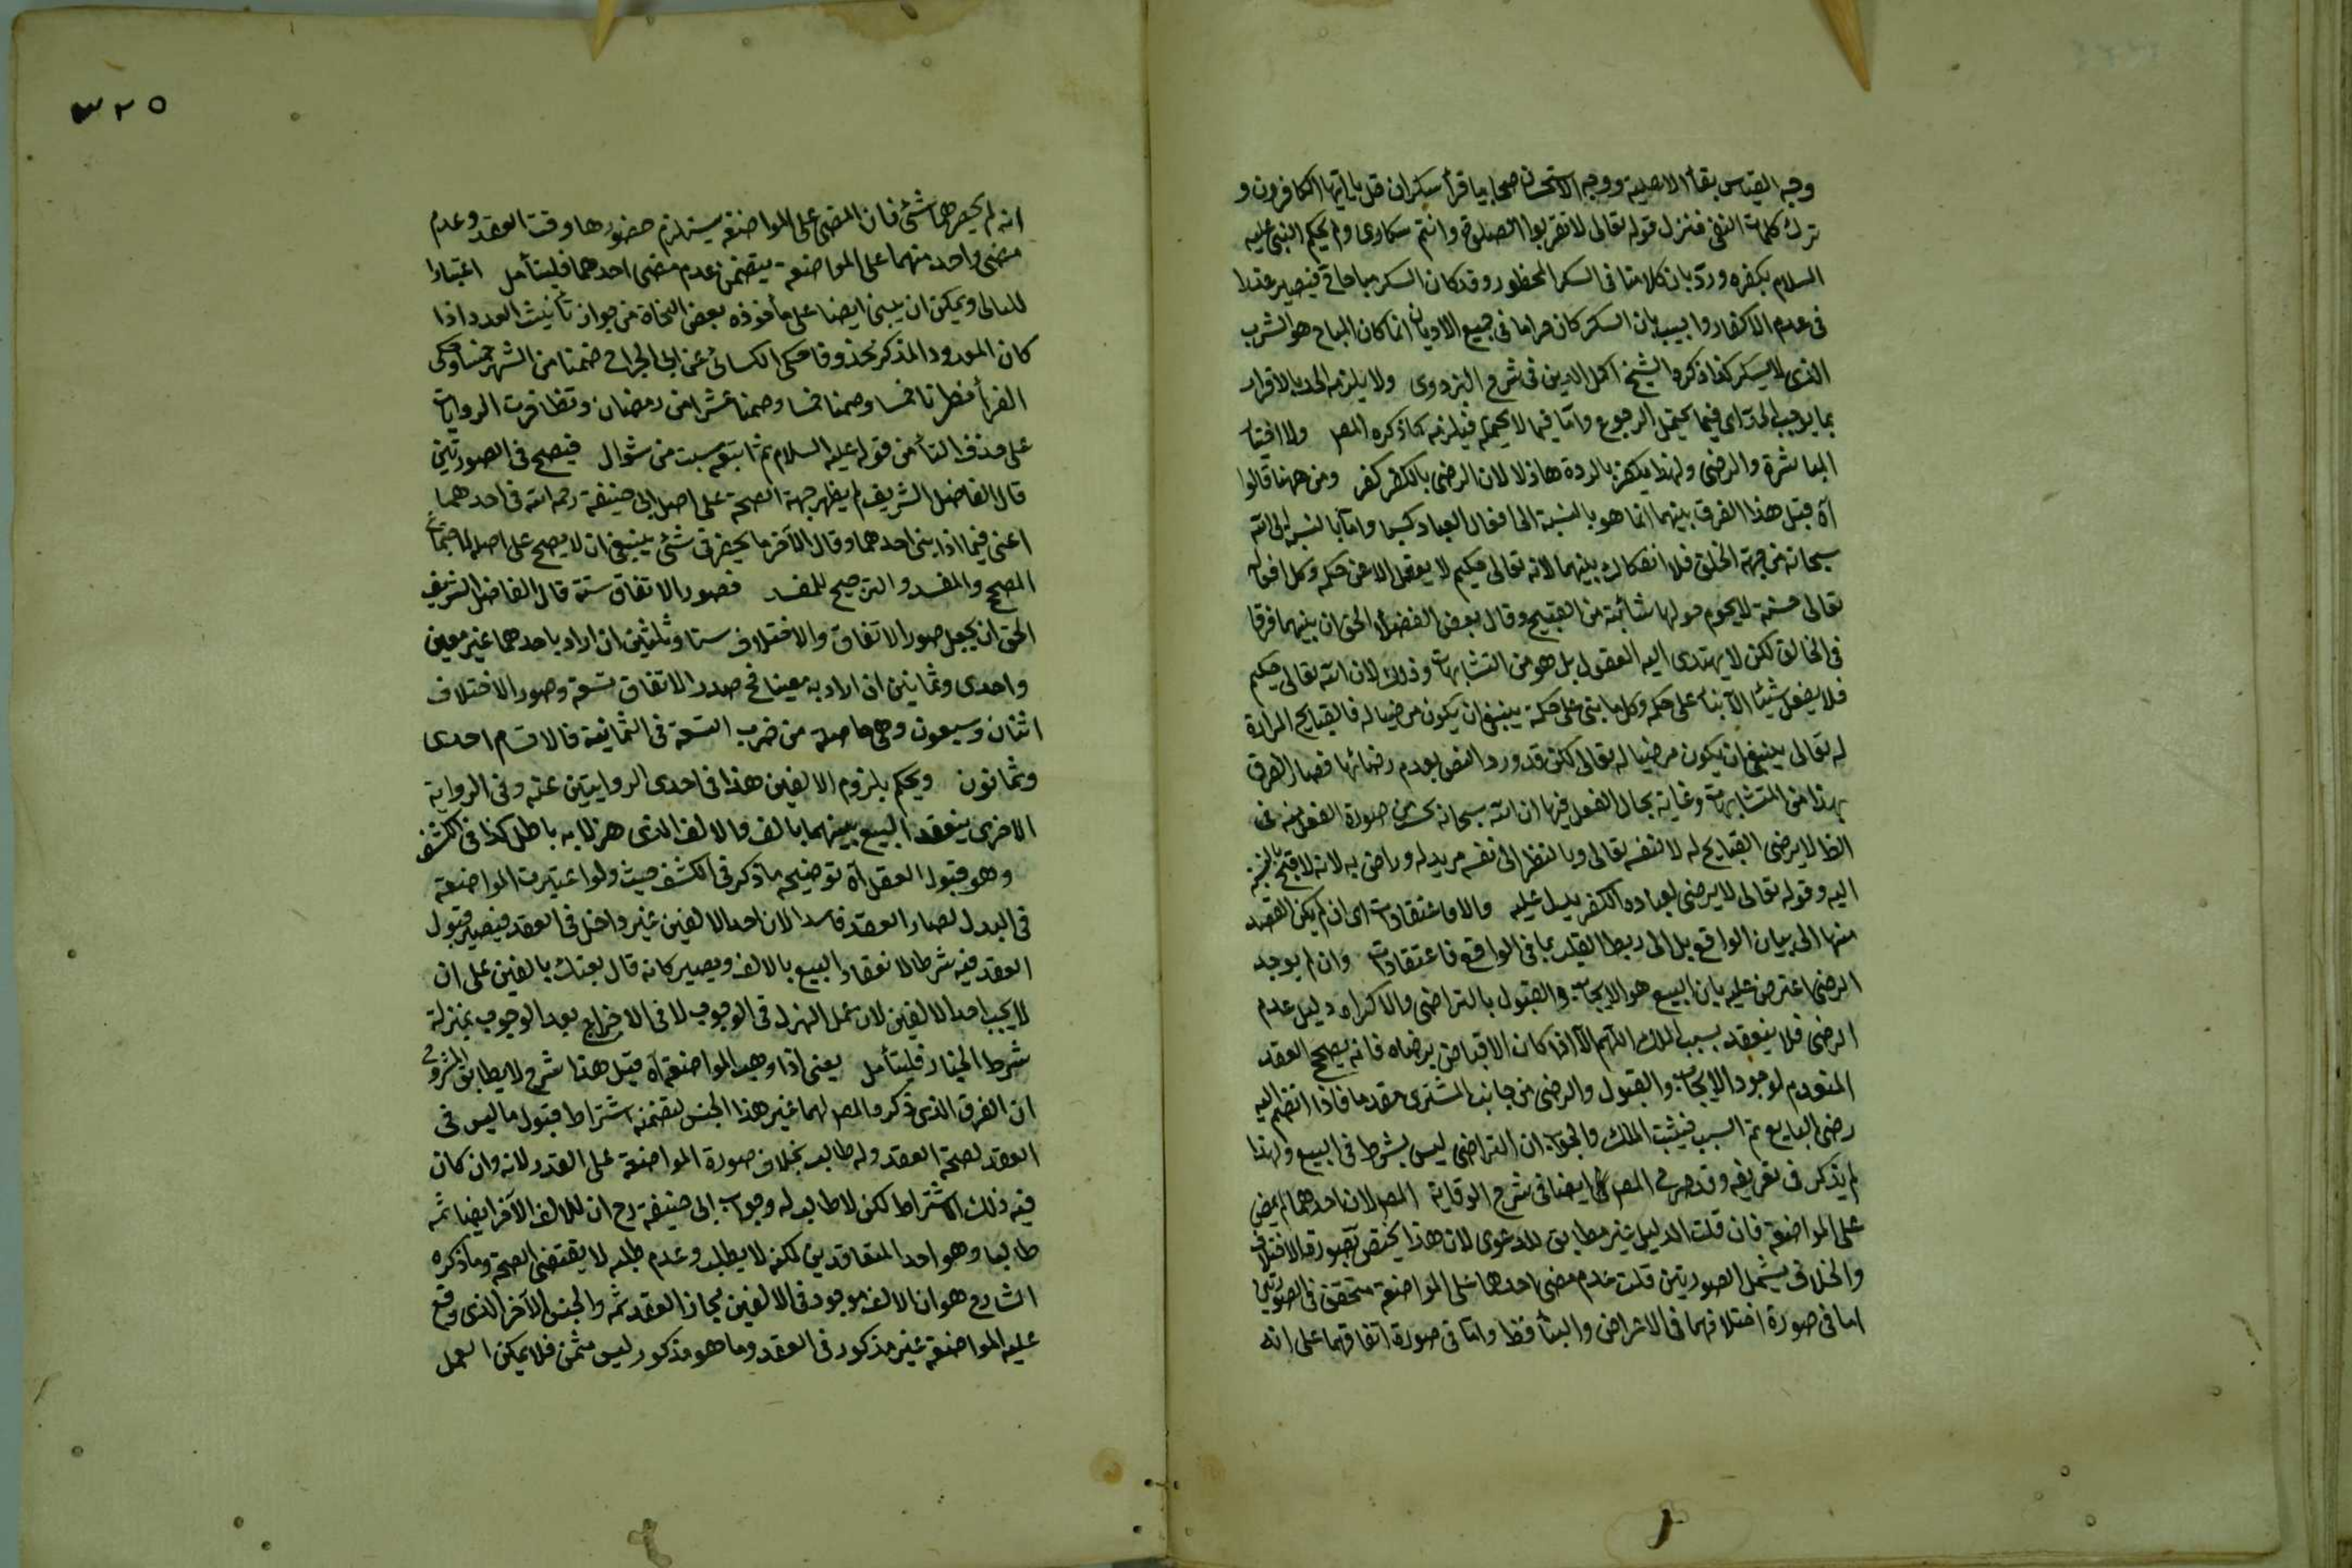 وجه القياس بقاء الاهلية ووجه الاستحسان صحابيا قرأ سكران قل يا ايها الكافرون و
ترك كلمات النفى فنزل قوله تعالى لا تقربوا الصلوة وانتم سكارى ولم يحكم النبى عليه
السلام بكفره وردّ بان كلامنا فى السكر المحظور وقد كان السكر مباحا فيصير عذرا
فى عدم الاكفار واجيب بان السكر كان حراما فى جميع الاديان انما كان المباح هو الشرب
الذى لا يسكر كذا ذكره الشيخ اكمل الدين فى شرح البزدوى ولا يلزمه الحد بالاقرار
بما يوجب الحد اى فيما يحتمل الرجوع وامّا فيما لا يحتمله فيلزمه كما ذكره المص ولا اختيار
المباشرة والرضى ولهذا يكفر بالردة هازلا لان الرضى بالكفر كفر ومن ههنا قالوا
آه قيل هذا الفرق بينهما انما هو بالنسبة الى افعال العباد كسبا وامّا بالنسبة الى الله
سبحانه من جهة الخلق فلا انفكاك بينهما لانه تعالى حكيم لا يفعل الا عن حكمه وكل افعاله
تعالى حسنة لا يحوم حولها شائبة من القبيح وقال بعض الفضلاء الحق ان بينهما فرقا
فى الخالق لكن لا يهتدى اليه العقول بل هو من المتشابهات وذلك لان الله تعالى حكيم
فلا يفعل شيئا الا بناء على حكمه وكل ما بنى على حكمة ينبغى ان يكون مرضيا له فالقبايح المرادة
له تعالى ينبغى ان يكون مرضيا له تعالى لكن قد ورد النص بعدم رضائها فصار الفرق
بهذا من المتشابهات وغاية مجال العقول فيها ان الله سبحانه صورة الفعل
الظا لا يرضى القبايح له لا لنفسه تعالى وبالنظر الى نفسه مريد له وراض به لانه لا قبح بالنسبة
اليه وقوله تعالى لا يرضى لعباده الكفر يدل عليه والاواعتقادات اى ان لم يكن القصد
منها الى بيان الواقع بل الى ربط القلب بما فى الواقع فاعتقادات وان لم يوجد
الرضى اعترض عليه بان البيع هو الايجاب والقبول بالتراضى والاكراه دليل عدم
الرضى فلا ينعقد بسبب الملك اللهم الا اذا كان الاقباض برضاه فانه يصحح العقد
المتقدم لوجود الايجاب والقبول والرضى من جانب المشترى مقدما فاذا انضم اليه
رضى البايع تم السبب فيثبت الملك والجواب ان التراضى ليس بشرط فى البيع ولهذا
لم يذكر فى تعريفه وقد صرح المص ايضا فى شرح الوقاية المص لان احدهما لم يمض
على المواضعة فان قلت الدليل غير مطابق للدعوى لان هذا يختص بصورة الاختلاف
والخلاف يشمل الصورتين قلت عدم مضى احدهما على المواضعة متحقق فى الصورتين
اما فى صورة اختلافهما فى الاعراض والبناء فظ واما فى صورة اتفاقهما على انه
٣٢٥
انه لم يحضرهما شئ فان المضى على المواضعة يستلزم حضورها وقت العقد وعدم
مضى واحد منهما على المواضعة يتضمن عدم مضى احدهما فليتأمل اعتبارا
لليالى ويمكن ان يبنى ايضا على ما جوزه بعض النحاة من جواز تأنيث العدد اذا
كان المعدود المذكر محذوفا حكى الكسائى عن ابى الجراح صمنا من الشهر خمسا وحكى
الفراء افطرنا خمسا وصمنا خمسا وصمنا عشرا من رمضان وتظافرت الروايات
على حذف التاء من قوله عليه السلام ثم اتبعه بست من شوال فيصح فى الصورتين
قال الفاضل الشريف لم يظهر جهة الصحة على اصل ابى حنيفة رحمه الله فى احدهما
اعنى فيما اذا بنى احدهما وقال الآخر ما يحضرنى شئ ينبغى ان لا يصح على اصله لاجتماع
المصحح والمفسد والترجيح للمفسد فصور الاتفاق ستة قال الفاضل الشريف
الحق ان يجعل صور الاتفاق والاختلاف ستا وثلثين ان اراد باحدهما غير معين
واحدى وثمانين ان اراد به معينا فح صدر الاتفاق تسعة وصور الاختلاف
اثنان وسبعون وهى حاصلة من ضرب التسعة فى الثمانية فالاقسام احدى
وثمانون ويحكم بلزوم الالفين هذا فى احدى الروايتين عنه وفى الرواية
الاخرى ينعقد البيع بينهما بالف والالف الذى هزلا به باطل كذا فى الكشف
وهو قبول العقد آه توضيحه ما ذكر فى الكشف حيث ولو اعتبرت المواضعة
فى البدل لصار العقد فاسدا لان احد الالفين غير داخل فى العقد فيصير قبول
العقد فيه شرطا لانعقاد البيع بالالف ويصير كانه قال بعتك بالفين على ان
لا يجب احد الالفين لان عمل الهزل فى الوجوب لا فى الاخراج بعد الوجوب بمنزلة
شرط الخيار فليتأمل يعنى اذا وهب المواضعة آه قيل هذا شرح لا يطابق المشروح
ان الفرق الذى ذكره المص لهما غير هذا الجنس لتضمنه اشتراط قبول ما ليس فى
العقد لصحة العقد وله طالب بخلاف صورة المواضعة على القدر لانه وان كان
فيه ذلك الاشتراط لكن لا طالب له وجواب ابى حنيفة رح ان للالف الآخر ايضا ثمه
طالبا وهو احد المتعاقدين لكنه لا يطلب وعدم طلبه لا يقتضى الصحة وما ذكره
الشارح هو ان الالف موجود فى الالفين فجاز العقد ثمه والجنس الآخر الذى وقع
عليه المواضعة غير مذكور فى العقد وما هو مذكور ليس بثمن فلا يمكن العمل